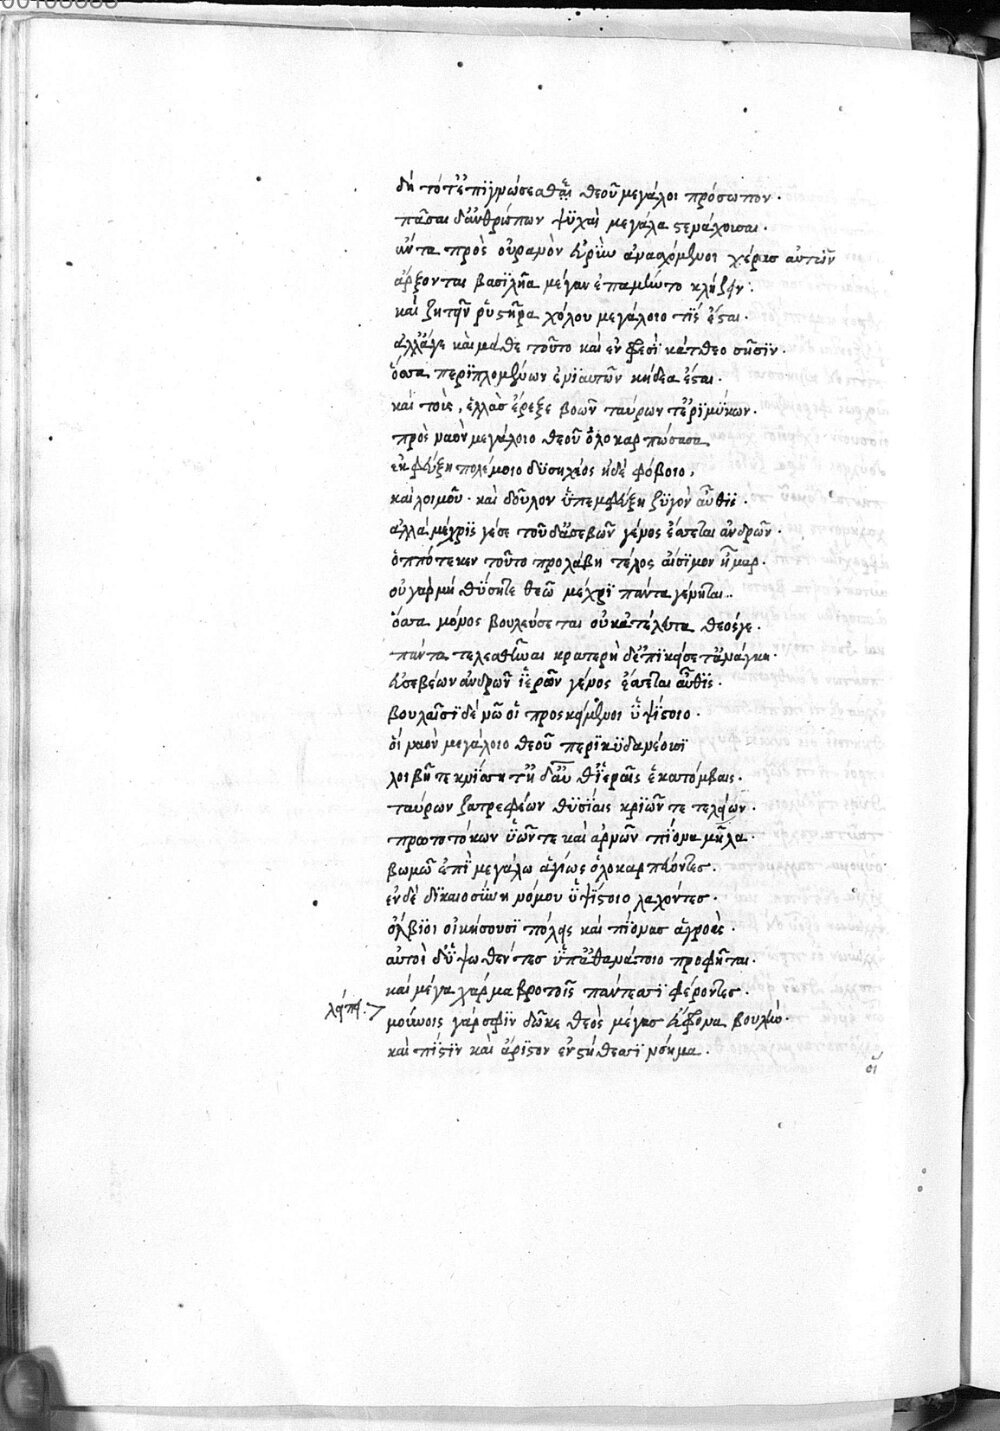 δή τότ' ἐπιγνώσεσθαι θεοῦ μεγάλοι πρόσωπον.
πᾶσαι δ' ἀνθρώπων ψϋχαὶ μεγάλα στενάχουσαι.
ἄντα πρὸς οὐρανὸν εὐρὺν ἀνασχόμενοι χέρας αὐτῶν
ἄρξονται βασϊλῆα μέγαν ἐπαμύντο κλῄζειν.
καὶ ζητεῖν ῥυστῆρα χόλου μεγάλοιο τίς ἔσται.
ἀλλ' ἄγε καὶ μάθε τοῦτο καὶ ἐν φρεσὶ κάτθεο σῇσϊν.
ὅσσα περϊπλομένων ἐνϊαυτῶν κήδεα ἔσται.
καὶ τοὶς, ἑλλὰς ἔρεξε βοῶν ταύρων τ' ἐρϊμύκων.
πρὸς ναὸν μεγάλοιο θεοῦ ὁλοκαρπώσασα
ἐκφεύξη πολέμοιο δϋσηχέος ἠδὲ φόβοιο,
καὶ λοιμοῦ. καὶ δοῦλον ὑπεκφεύξη ζϋγὸν αὖθις.
ἀλλὰ μέχρϊς γέσε τοῦδ' ἀσεβῶν γένος ἔσσεται ἀνδρῶν.
ὁππότε κεν τοῦτο προλάβη τέλος αἴσϊμον ἦμαρ.
οὐ γὰρ μή θύσητε θεῶ μέχρϊ πάντα γένηται..
ὅσσα μόνος βουλεύσεται οὐκ ἀτέλεστα θεὸς γε.
πάντα τελεσθῆναι κρατερὴ δ' ἐπϊκείσετ' ἀνάγκη.
εὐσεβέων ἀνδρῶν ἱερῶν γένος ἔσσεται αὖθϊς.
βουλαῖσϊ δὲ νῶ οἱ προσκείμενοι ὑψίστοιο.
οἱ ναὸν μεγάλοιο θεοῦ περϊκϋδανέουσϊ
λοιβῆ τε κνίσση τῆ δ' αὖ θ' ἱεραῖς ἑκατόμβαις.
ταύρων ζατρεφέων θϋσίαις κρϊῶν τε τελείων.
πρωτοτόκων ὑῶν τε καὶ ἀρνῶν πίονα μῆλα.
βωμῶ ἐπὶ μεγάλω ἁγίως ὁλοκαρπεύοντες.
ἐν δὲ δϊκαιοσύνη νόμου ὑψίστοιο λαχόντες.
ὄλβϊοι οἰκήσουσϊ πόλεις καὶ πίονας ἀγροὺς.
αὐτοὶ δ' ὑψωθέντες ὑπ' ἀθανάτοιο προφῆται.
καὶ μέγα χάρμα βροτοῖς πάντεσσϊ φέροντες.
λείπει. μούνοις γάρ σφϊν δῶκε θεὸς μέγας εὔφρονα βουλὴν.
καὶ πίστϊν καὶ ἄρϊστον ἐν στήθεσσϊ νόημα.
οἵ